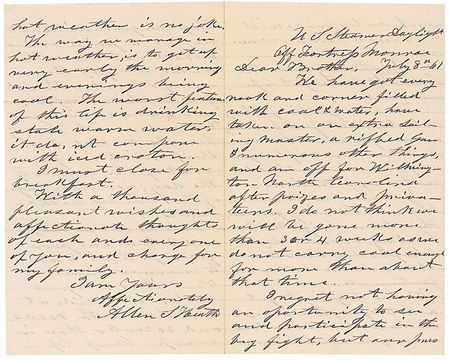 U S Steamer Daylight
Off Fortress Monroe
July 8th 61
Dear Brother,
We have got every
nook and corner filled
with coal & water, have
taken on an extra sail-
ing master, a rifled gun
& numerous other things,
and are off for Wilming-
ton North Carolina
after prizes and priva-
teers. I do not think we
will be gone more
than 3 or 4 weeks as we
do not carry coal enough
for more than about
that time.
I regret not having
an oportunity to see
and participate in the
big fight, but our
hot weather is no joke.
The way we manage in
hot weather, is to get up
very early the morning
and evenings being
cool. The worst
of this life is drinking
stale warm water.
it do, nt compare
with iced croton.
I must close for
breakfast.
With a thousand
pleasant wishes and
affectionate thoughts
of each and everyone
of you, and
my family.
I am Yours
Affectionately
Allen